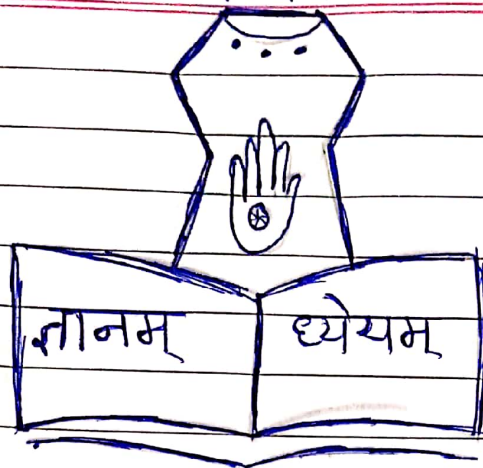 ज्ञानम् ध्येयम्